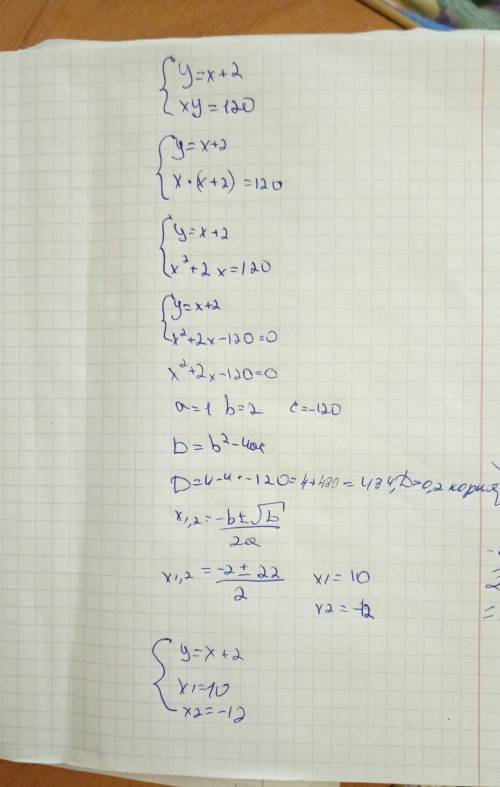 { y=x+2
xy=120
{ y=x+2
x·(x+2)=120
{ y=x+2
x²+2x=120
{ y=x+2
x²+2x-120=0
x²+2x-120=0
a=1 b=2 c=-120
D=b²-4ac
D=4-4·-120=4+480=484, D>0, 2 корня
x1,2=-b±√D/2a
x1,2=-2±22/2 x1=10
x2=-12
{ y=x+2
x1=10
x2=-12